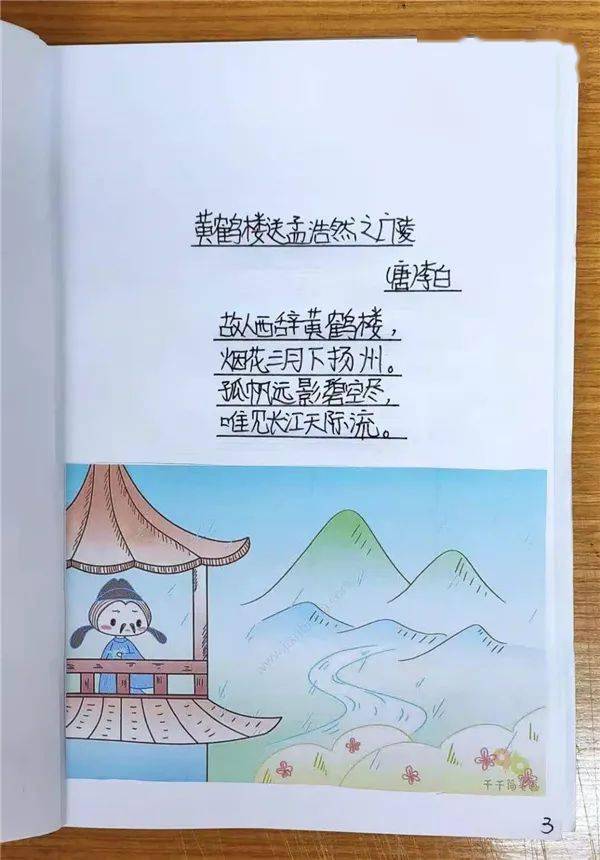 黄鹤楼送孟浩然之广陵
(唐)李白
故人西辞黄鹤楼，
烟花三月下扬州。
孤帆远影碧空尽，
唯见长江天际流。
3